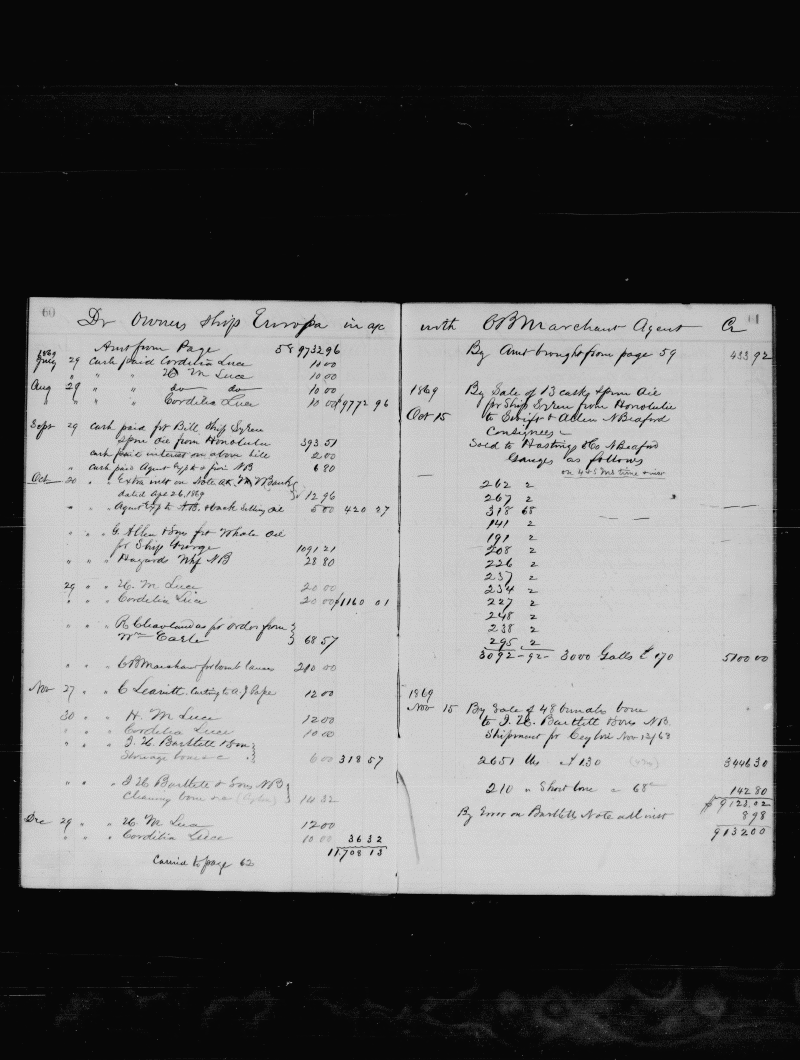 60
Dr Owners Ship Europa in a/c
Amt from Page 58 9732 96
1869
July 29 Cash paid Cordelia Luce 10 00
" " " H M Luce 10 00
Aug 29 " " do do 10 00
" " " " Cordelia Luce 10 00 $9772 96
Sept 29 Cash paid for Bill Ship Syren
Spm Oil from Honolulu 393 51
Cash paid interest on above bill 2 00
" Cash paid Agent Exp & fire NB 6 80
Oct 20 " Extra int on Note at Bank
dated Apl 26, 1869 12 96
" " Agent Exp to NB & back selling Oil 5 00 420 27
" " G Allen & Son for Whale Oil
for Ship George 1091 21
" " " Hazards Whf NB 28 80
29 " " H. M Luce 20 00
" " " Cordelia Luce 20 00 $1160 01
" " " R Cleaveland as pr order from
Wm Earle 68 57
" " " C B Marchant for 210 00
Nov 27 " " C Leavitt Carting to A. J Pope 12 00
30 " " H. M Luce 12 00
" " " Cordelia Luce 10 00
" " " J. H. Bartlett & Son
Storage bone &c 6 00 318 57
" " " J H Bartlett & Sons NB
Cleaning bone &c 14 32
Dec 29 " " H. M Luce 12 00
" " " Cordelia Luce 10 00 36 32
11,708 13
Carried to page 62
61
with C B Marchant Agent Cr
By Amt brought from page 59 433 92
1869 By Sale of 13 casks Spm Oil
Oct 15 pr Ship Syren from Honolulu
to Swift & Allen N Bedford
Consignees
Sold to Hastings & Co N Bedford
Gauges as follows
on 4 & 5 Ms time & int
262 2
267 2
318 68
141 2
191 2
208 2
226 2
237 2
234 2
227 2
248 2
238 2
295 2
3092 - 92 - 3000 Galls @ 170 5100 00
1869
Nov 15 By Sale of 48 bundles bone
to J. H. Bartlett & Sons NB.
Shipment pr Ceylon Nov 12/68
2651 lbs At 130 3446 30
210 " Short bone " 68c 142 80
$9123.02
By Error on Bartlett Note add int 8 98
9132 00